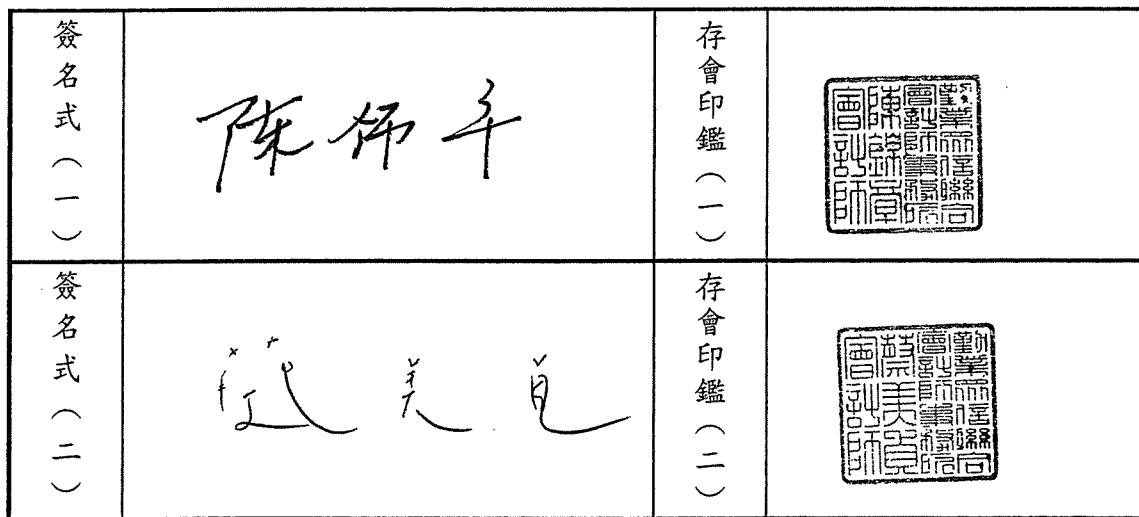 簽名式（一）
存會印鑑（一）
勤業眾信聯合
會計師事務所
陳錦章
會計師
簽名式（二）
存會印鑑（二）
勤業眾信聯合
會計師事務所
蔡美貞
會計師